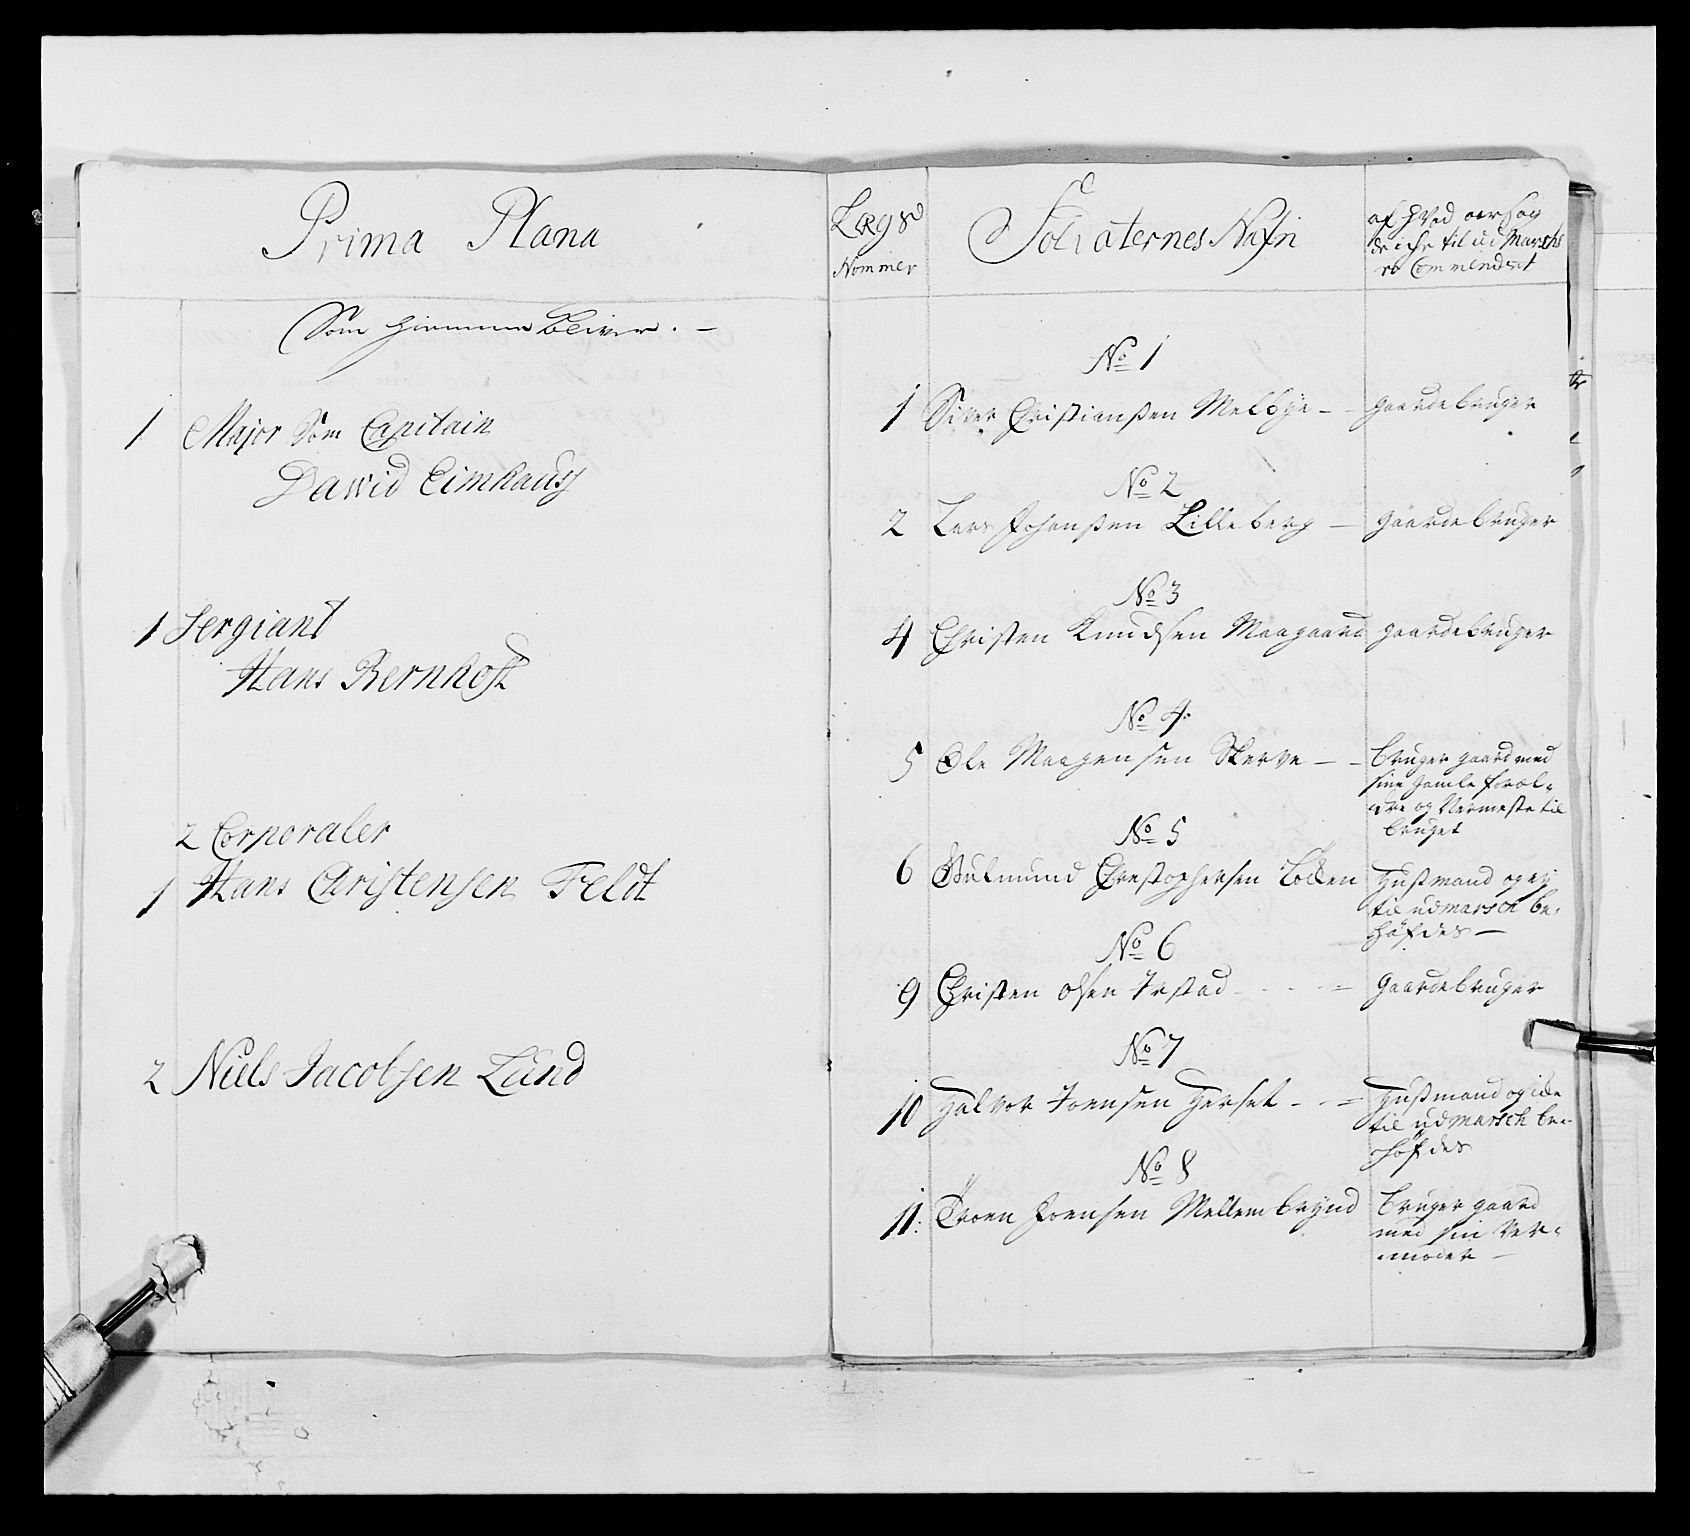 Prima Plana
Som hiemme bliver. —
1 Major Som Capitain
Dawid Eimhausz
1 Sergiant
Hans Bernhoft
2 Corporaler
1 Hans Christensen Feldt
2 Niels Jacobsen Lund
Lægs
Nommer
Soldaternes Nafn
af hvad aarsag
de iche til ud Marsch
er Commendert
No 1
1 Siver Christiansen Melbye — gaardebruger
No 2
2 Lars Johansen Lilleberg — gaardebruger
No 3
4 Christen Knudsen Maagaard gaardebruger
No 4
5 Ole Maagensen Skerve — bruger gaard med
sine gamle foræl-
dre og Nermeste til
bruget
No 5
6 Gulmund Christophersen Lochen Husmand og ej
til udmarsch be-
höfdes —
No 6
9 Christen Olsen Irstad - - - gaardebruger
No 7
10 Halvor Joensen Herset - - Husmand og icke
til udmarsch be-
höfdes
No 8
11: Troen Joensen Mellembrÿnd bruger gaard
med sin Ver-
moder —